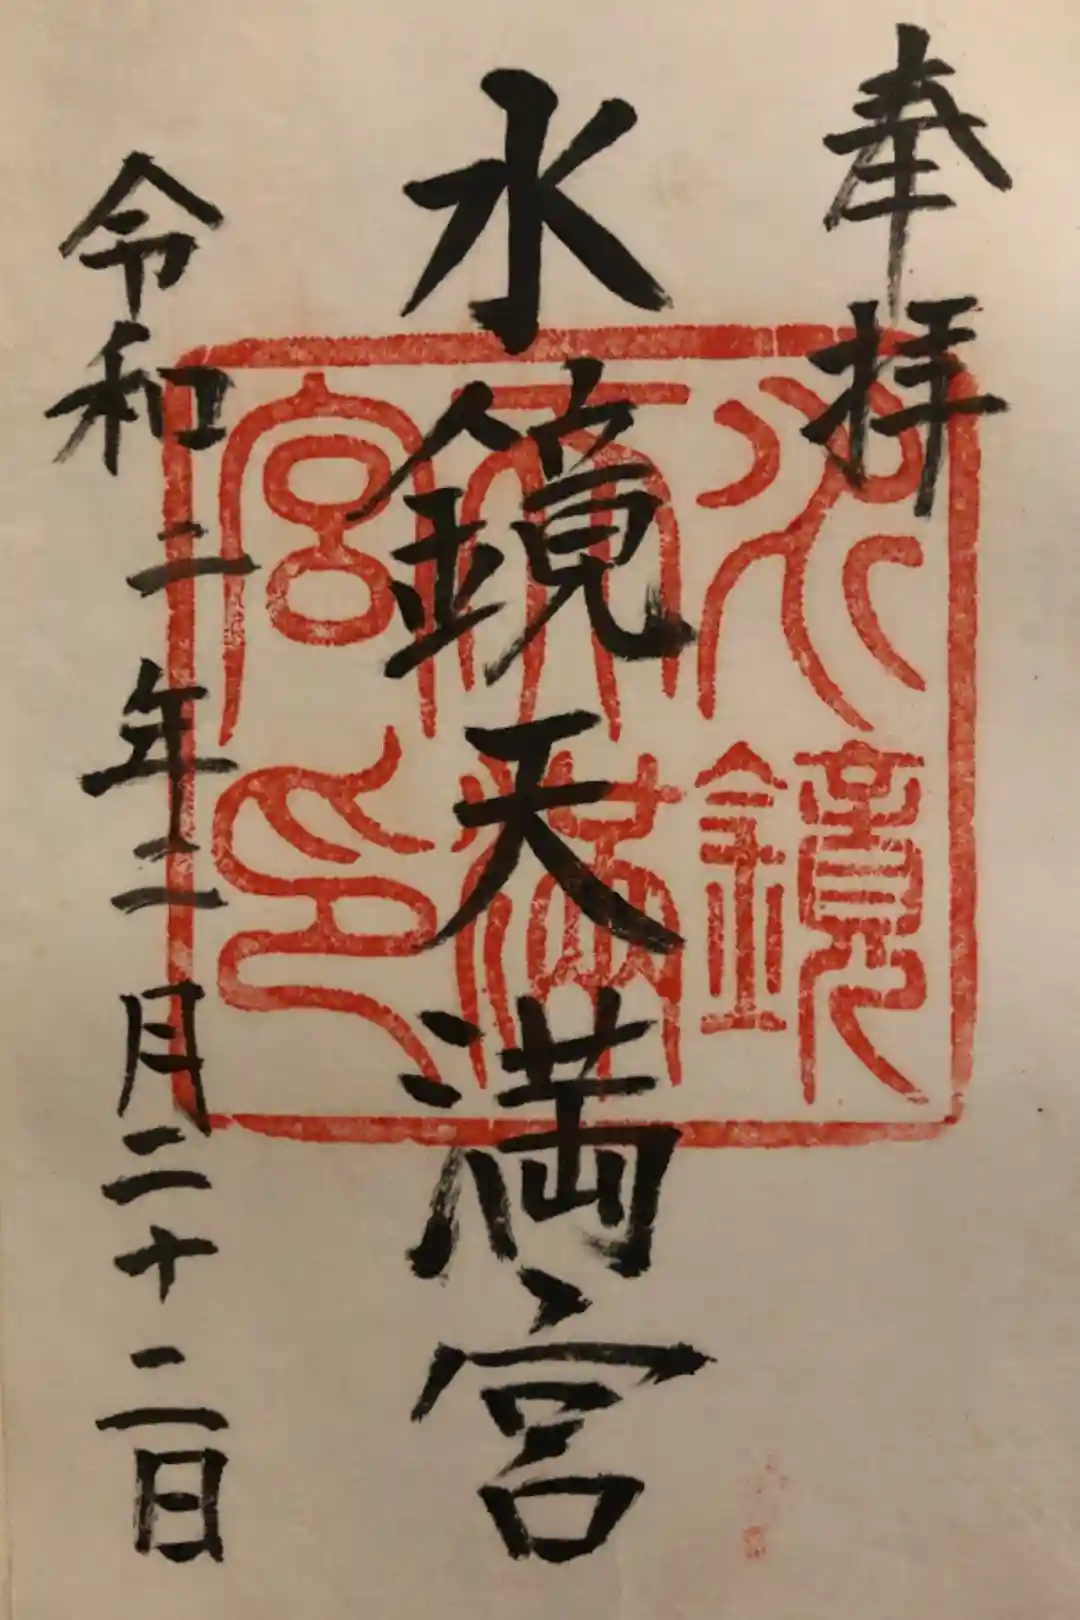 奉拝
水鏡天満宮
水鏡天満宮印
令和二年二月二十二日